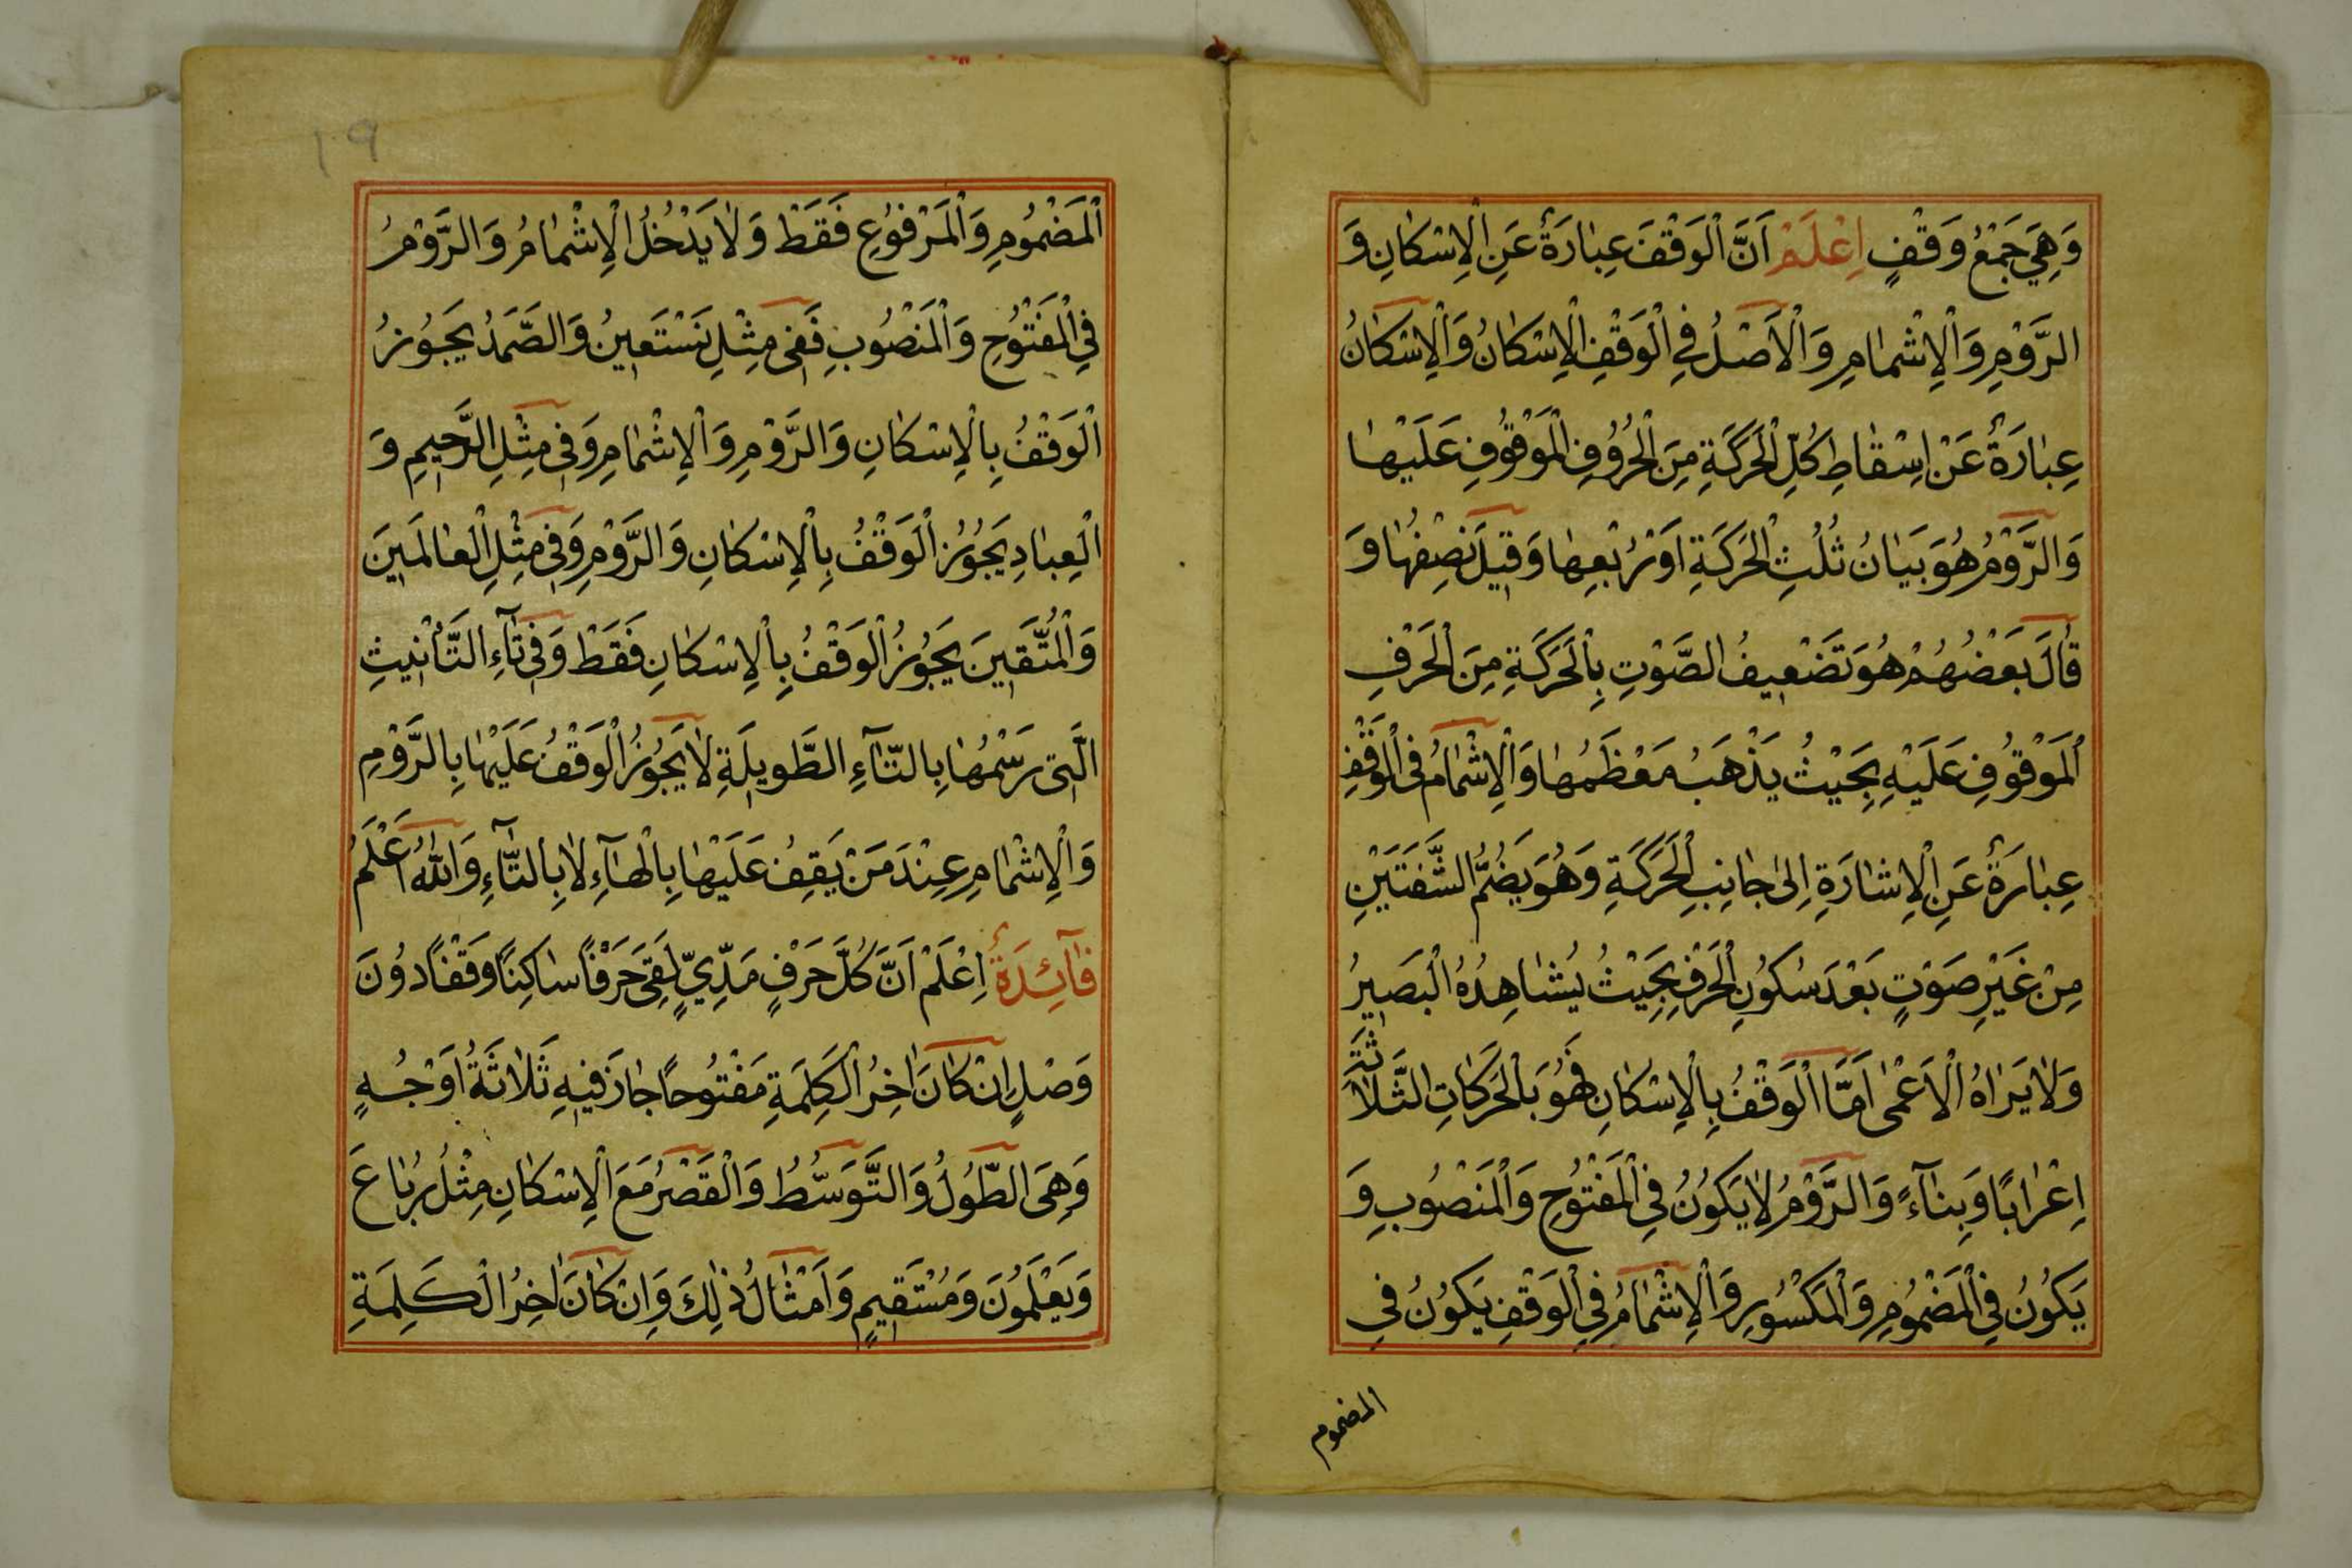 وَهِيَ جَمْعُ وَقْفٍ اِعْلَمْ اَنَّ الْوَقْفَ عِبَارَةٌ عَنِ الْاِسْكَانِ وَ
الرَّوْمِ وَالْاِشْمَامِ وَالْاَصْلُ فِي الْوَقْفِ الْاِسْكَانُ وَالْاِسْكَانُ
عِبَارَةٌ عَنْ اِسْقَاطِ كُلِّ الْحَرَكَةِ مِنَ الْحُرُوفِ الْمَوْقُوفِ عَلَيْهَا
وَالرَّوْمُ هُوَ بَيَانُ ثُلُثِ الْحَرَكَةِ اَوْ رُبْعِهَا وَقِيلَ نِصْفُهَا وَ
قَالَ بَعْضُهُمْ هُوَ تَضْعِيفُ الصَّوْتِ بِالْحَرَكَةِ مِنَ الْحَرْفِ
الْمَوْقُوفِ عَلَيْهِ بِحَيْثُ يَذْهَبُ مَعْظَمُهَا وَالْاِشْمَامُ فِي الْوَقْفِ
عِبَارَةٌ عَنِ الْاِشَارَةِ اِلٰى جَانِبِ الْحَرَكَةِ وَهُوَ يَضُمُّ الشَّفَتَيْنِ
مِنْ غَيْرِ صَوْتٍ بَعْدَ سُكُونِ الْحَرْفِ بِحَيْثُ يُشَاهِدُهُ الْبَصِيرُ
وَلَا يَرَاهُ الْاَعْمٰى اَمَّا الْوَقْفُ بِالْاِسْكَانِ فَهُوَ بِالْحَرَكَاتِ الثَّلَاثَةِ
اِعْرَابًا وَبِنَآءً وَالرَّوْمُ لَا يَكُونُ فِي الْمَفْتُوحِ وَالْمَنْصُوبِ وَ
يَكُونُ فِي الْمَضْمُومِ وَالْمَكْسُورِ وَالْاِشْمَامُ فِي الْوَقْفِ يَكُونُ فِي
المضموم
١٩
الْمَضْمُومِ وَالْمَرْفُوعِ فَقَطْ وَلَا يَدْخُلُ الْاِشْمَامُ وَالرَّوْمُ
فِي الْمَفْتُوحِ وَالْمَنْصُوبِ فَفِي مِثْلِ نَسْتَعِينُ وَالصَّمَدُ يَجُوزُ
الْوَقْفُ بِالْاِسْكَانِ وَالرَّوْمِ وَالْاِشْمَامِ وَفِي مِثْلِ الرَّحِيمِ وَ
الْعِبَادِ يَجُوزُ الْوَقْفُ بِالْاِسْكَانِ وَالرَّوْمِ وَفِي مِثْلِ الْعَالَمِينَ
وَالْمُتَّقِينَ يَجُوزُ الْوَقْفُ بِالْاِسْكَانِ فَقَطْ وَفِي تَآءِ التَّأْنِيثِ
الَّتِي رَسْمُهَا بِالتَّآءِ الطَّوِيلَةِ لَا يَجُوزُ الْوَقْفُ عَلَيْهَا بِالرَّوْمِ
وَالْاِشْمَامِ عِنْدَ مَنْ يَقِفُ عَلَيْهَا بِالْهَآءِ لَا بِالتَّآءِ وَاللّٰهُ اَعْلَمُ
فَآئِدَةٌ اِعْلَمْ اَنَّ كُلَّ حَرْفٍ مَدِّيٍّ لَقِيَ حَرْفًا سَاكِنًا وَقْفًا دُونَ
وَصْلٍ اِنْ كَانَ اٰخِرُ الْكَلِمَةِ مَفْتُوحًا جَازَ فِيهِ ثَلَاثَةُ اَوْجُهٍ
وَهِيَ الطُّولُ وَالتَّوَسُّطُ وَالْقَصْرُ مَعَ الْاِسْكَانِ مِثْلُ رُبَاعَ
وَيَعْلَمُونَ وَمُسْتَقِيمٍ وَاَمْثَالُ ذٰلِكَ وَاِنْ كَانَ اٰخِرُ الْكَلِمَةِ